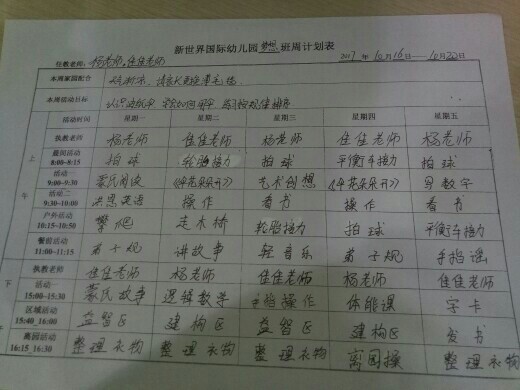 新世界国际幼儿园 梦想 班周计划表
任教老师: 杨老师,佳佳老师 2017年10月16日——10月20日
本周家园配合
本周活动目标
活动时间 星期一 星期二 星期三 星期四 星期五
上午
执教老师 杨老师 佳佳老师 杨老师 佳佳老师 杨老师
晨间活动 8:00-8:15 拍球 轮胎接力 拍球 平衡车接力 拍球
活动一 9:00-9:30 蒙氏阅读 《华花朵朵开》 艺术创想 《华花朵朵开》 写数字
活动二 9:30-10:00 洪恩英语 操作 看书 操作 看书
户外活动 10:15-10:50 攀爬 走木桥 轮胎接力 拍球 平衡车接力
餐前活动 11:00-11:15 弟子规 讲故事 轻音乐 弟子规 手指谣
下
执教老师 佳佳老师 杨老师 佳佳老师 杨老师 佳佳老师
活动一 15:00-15:30 蒙氏故事 逻辑数学 手指操作 体能课 字卡
区域活动 15:40_16:00 益智区 建构区 益智区 建构区 看书
离园活动 16:15_16:30 整理衣物 整理衣物 整理衣物 离园操 整理衣物